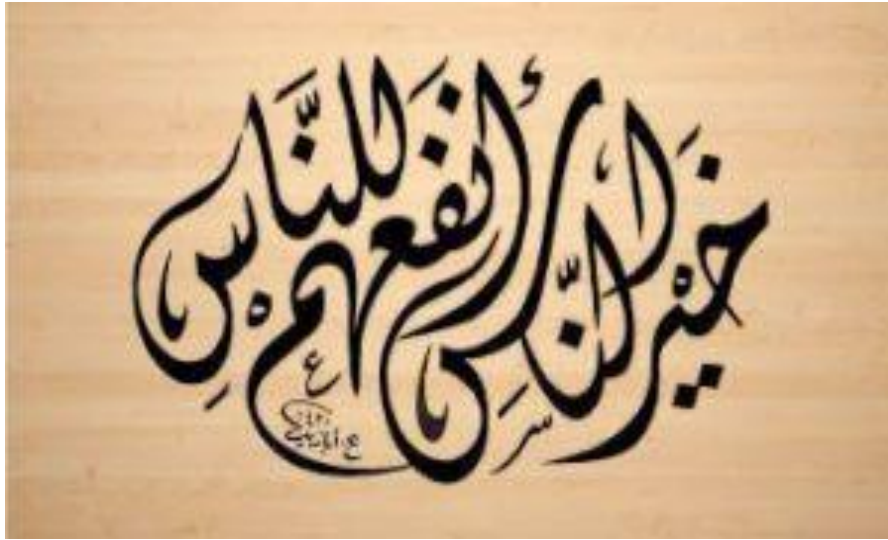 خَيْرُ النَّاسِ أنفعهم للنَّاسِ